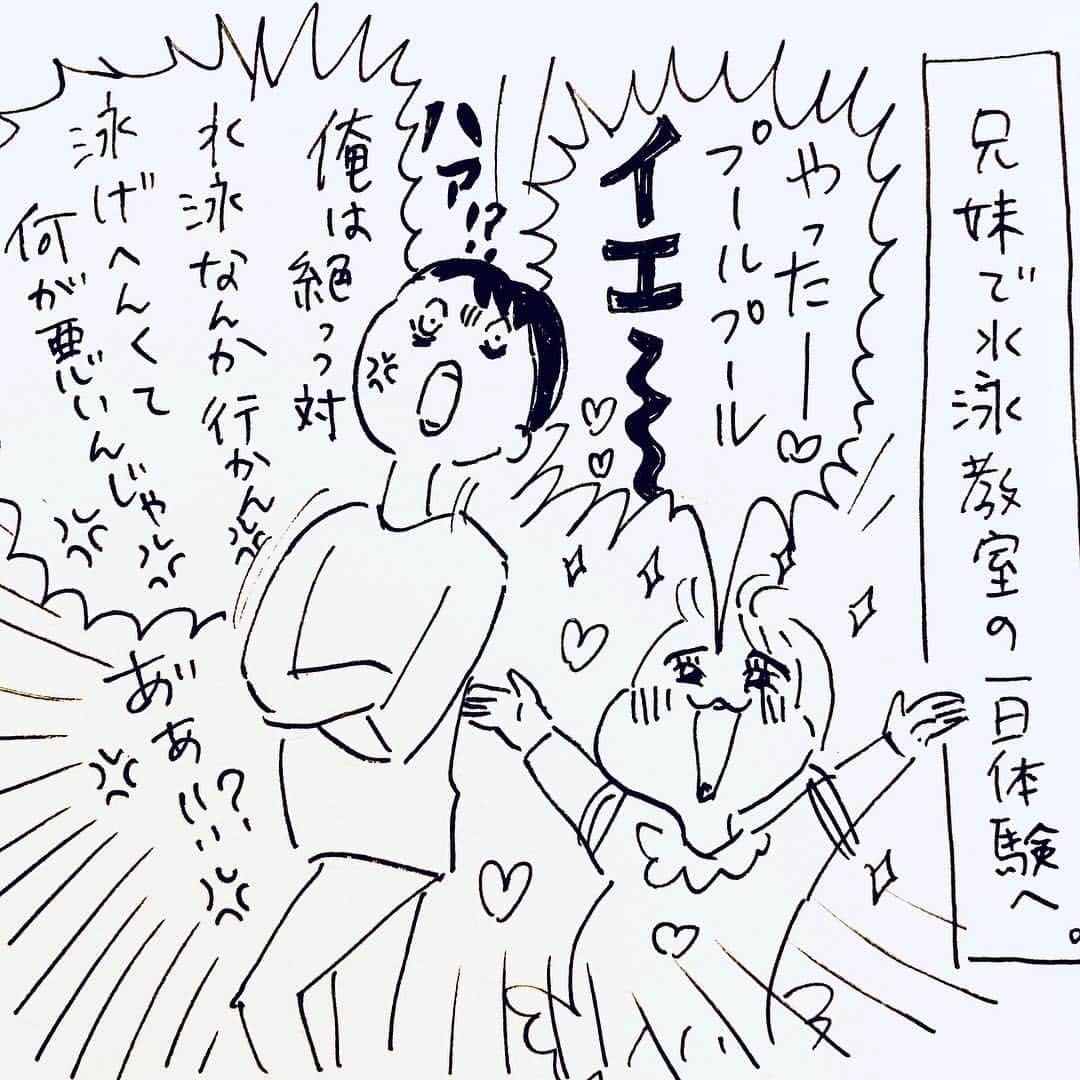 兄妹で水泳教室の一日体験へ。
やったー
プールプール
イエ〜
ハァ!?
俺は絶っつ対
水泳なんか行かん
泳げへんくて
何が悪いんじゃ
あ゛ぁ!!?